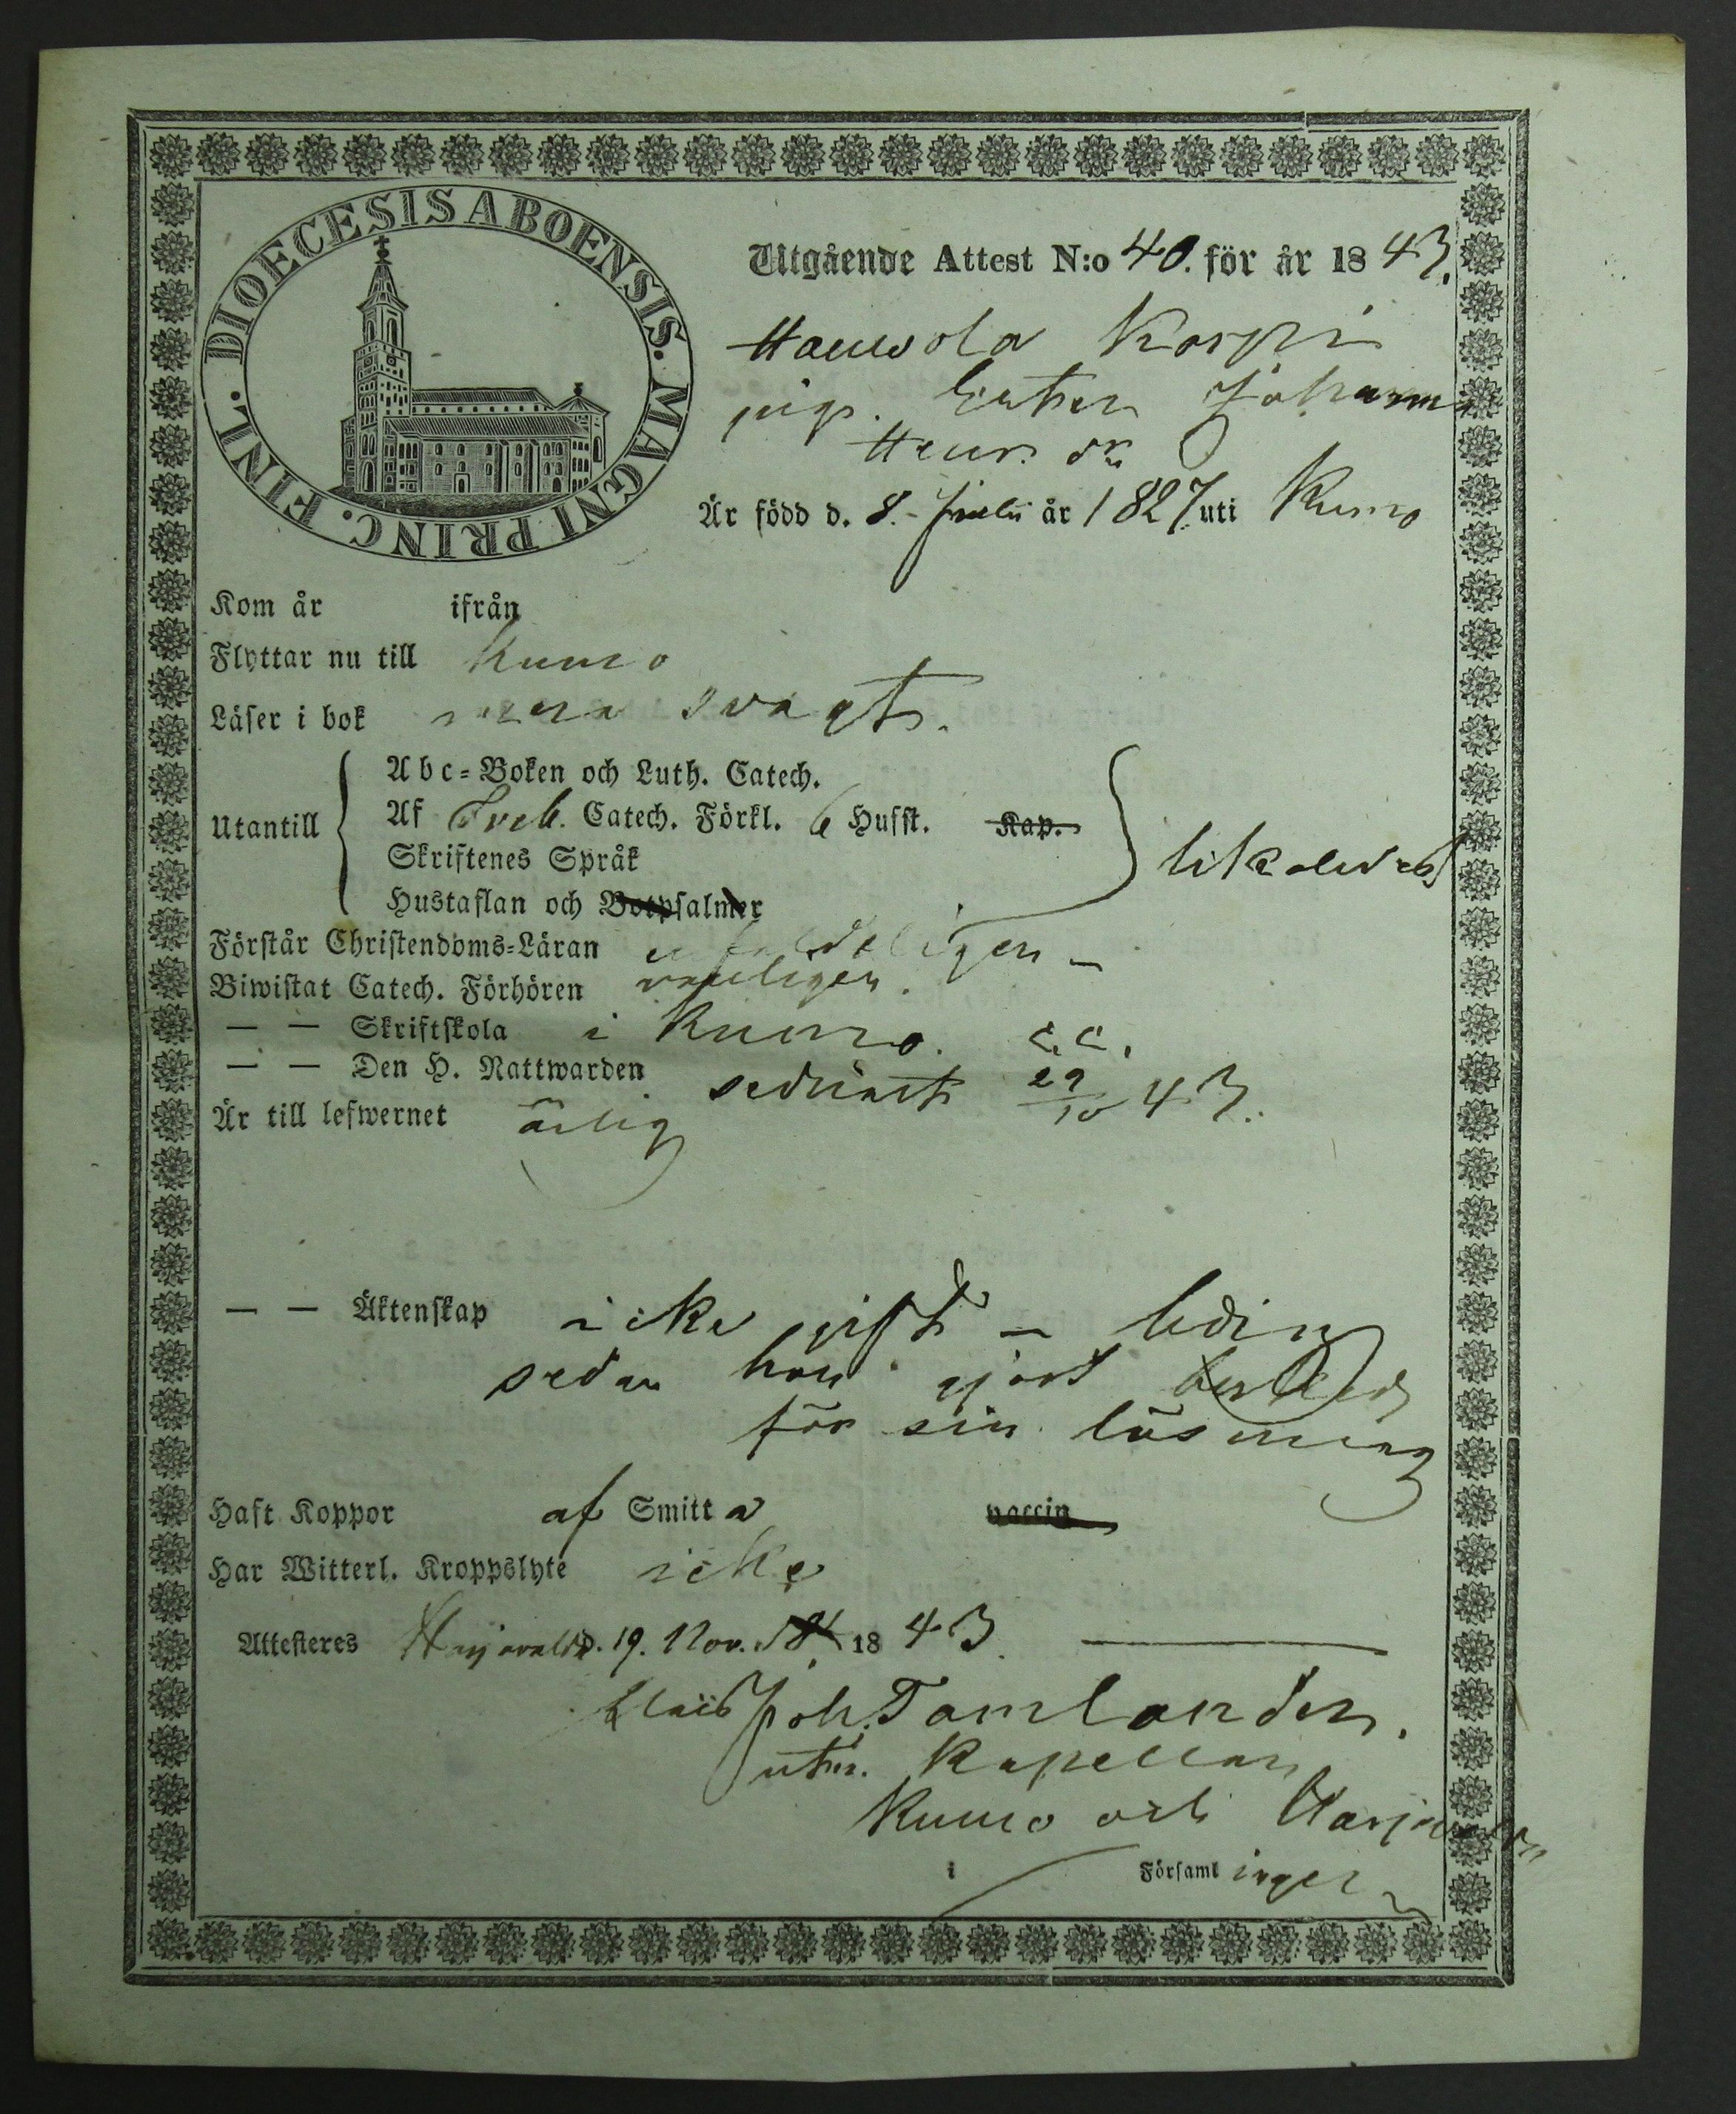 DIOECESIS ABOENSIS. MAGNI PRINC. FINL.
Utgående Attest N:o 40. för år 1843.
Hauvola Korpi
pig. Ester Johanna
Henr. dr
Är född d. 8. Julii år 1827 uti Kumo
Kom år ifrån
Flyttar nu till Kumo
Läser i bok svagt.
Utantill
Abc-Boken och Luth. Catech.
Af Sveb. Catech. Förkl. 6 Hufst. Kap.
Skriftenes Språk
Hustaflan och Botpsalmer
likaledes
Förstår Christendoms-Läran enfaldeligen
Biwistat Catech. Förhören vanligen.
— — Skriftskola i Kumo.
— — Den H. Nattwarden sednast 29/10 43.
Är till lefwernet ärlig
— — Äktenskap icke gift – ledig
sedan hon gjort besked
för sin läsning
Haft Koppor af Smitta vaccin
Har Witterl. Kroppslyte icke
Attesteres Harjavalda. 19. Nov. 1843.
Joh. Tamlander.
Kapellan
Kumo och Harjavalda
i Församlingar